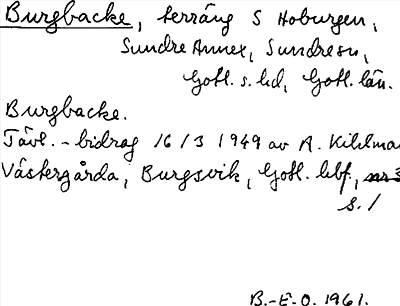 Burgbacke, terräng S Hoburgen,
Sundre Annex, Sundre sn,
Gotl. s. hd, Gotl. län.
Burgbacke.
Tävl.-bidrag 16/3 1949 av A. Kihlma
Västergårda, Burgsvik, Gotl. hbf.,
s. 1
B.-E.O. 1961.